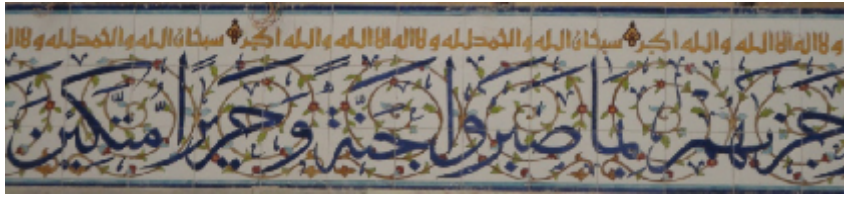 ولا اله الا الله والله اكبر سبحان الله والحمد لله ولا اله الا الله والله اكبر سبحان الله والحمد لله ولا ال
وجزيهم بما صبروا جنة وحريرا متكئين